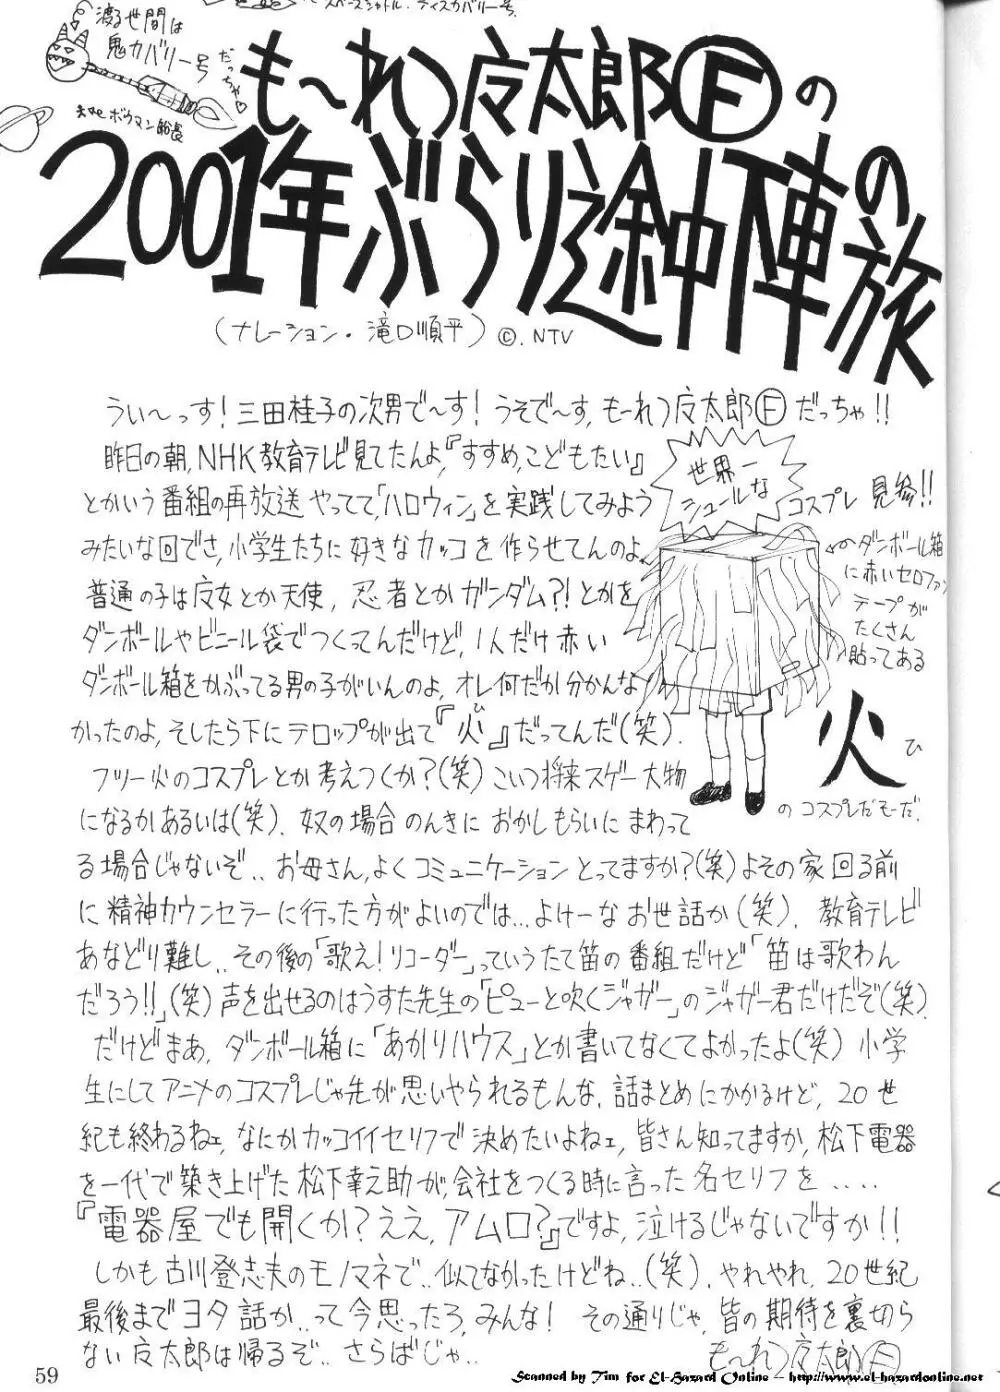 スペースシャトル・ディスカバリー号。
渡る世間は
鬼カバリー号
だっちゃ♡
ボウマン船長
も〜れつ广太郎Ⓕの
2001年ぶらり途中下車の旅
(ナレーション・滝口順平)©.NTV
うぃ〜っす!三田桂子の次男で〜す!うそで〜す,も〜れつ广太郎Ⓕだっちゃ!!
昨日の朝,NHK教育テレビ見てたんよ,『すすめ,こどもたい』
とかいう番組の再放送やってて,「ハロウィン」を実践してみよう
みたいな回でさ,小学生たちに好きなカッコを作らせてんのよ
普通の子は广女とか天使,忍者とかガンダム?!とかを
ダンボールやビニール袋でつくってんだけど,1人だけ赤い
ダンボール箱をかぶってる男の子がいんのよ,オレ何だか分かんな
かったのよ,そしたら下にテロップが出て『火』だってんだ(笑).
ひ
フツー火のコスプレとか考えつくか?(笑)こいつ将来スゲー大物
になるかあるいは(笑).奴の場合のんきにおかしもらいにまわって
る場合じゃないぞ..お母さん,よくコミュニケーションとってますか?(笑)よその家回る前
に精神カウンセラーに行った方がよいのでは...よけーなお世話か(笑).教育テレビ
あなどり難し..その後の「歌え!リコーダー」っていうたて笛の番組だけど「笛は歌わん
だろう!!」(笑)声を出せるのはうすた先生の「ピューと吹くジャガー」のジャガー君だけだぞ(笑).
だけどまあ,ダンボール箱に「あかりハウス」とか書いてなくてよかったよ(笑)小学
生にしてアニメのコスプレじゃ先が思いやられるもんな.話まとめにかかるけど,20世
紀も終わるねェ,なにかカッコイイセリフで決めたいよねェ,皆さん知ってますか,松下電器
を一代で築き上げた松下幸之助が,会社をつくる時に言った名セリフを....
『電器屋でも開くか?ええ,アムロ?』ですよ,泣けるじゃないですか!!
しかも古川登志夫のモノマネで..似てなかったけどね..(笑).やれやれ,20世紀
最後までヨタ話か..って今思ったろ,みんな!その通りじゃ,皆の期待を裏切ら
ない广太郎は帰るぞ..さらばじゃ..
も〜れつ广太郎Ⓕ
世界一
シュールな
コスプレ見参!!
←のダンボール箱
に赤いセロファン
テープが
たくさん
貼ってある
火
ひ
のコスプレだそーだ.
59
Scanned by Tim for El-Hazard Online – http://www.el-hazardonline.net